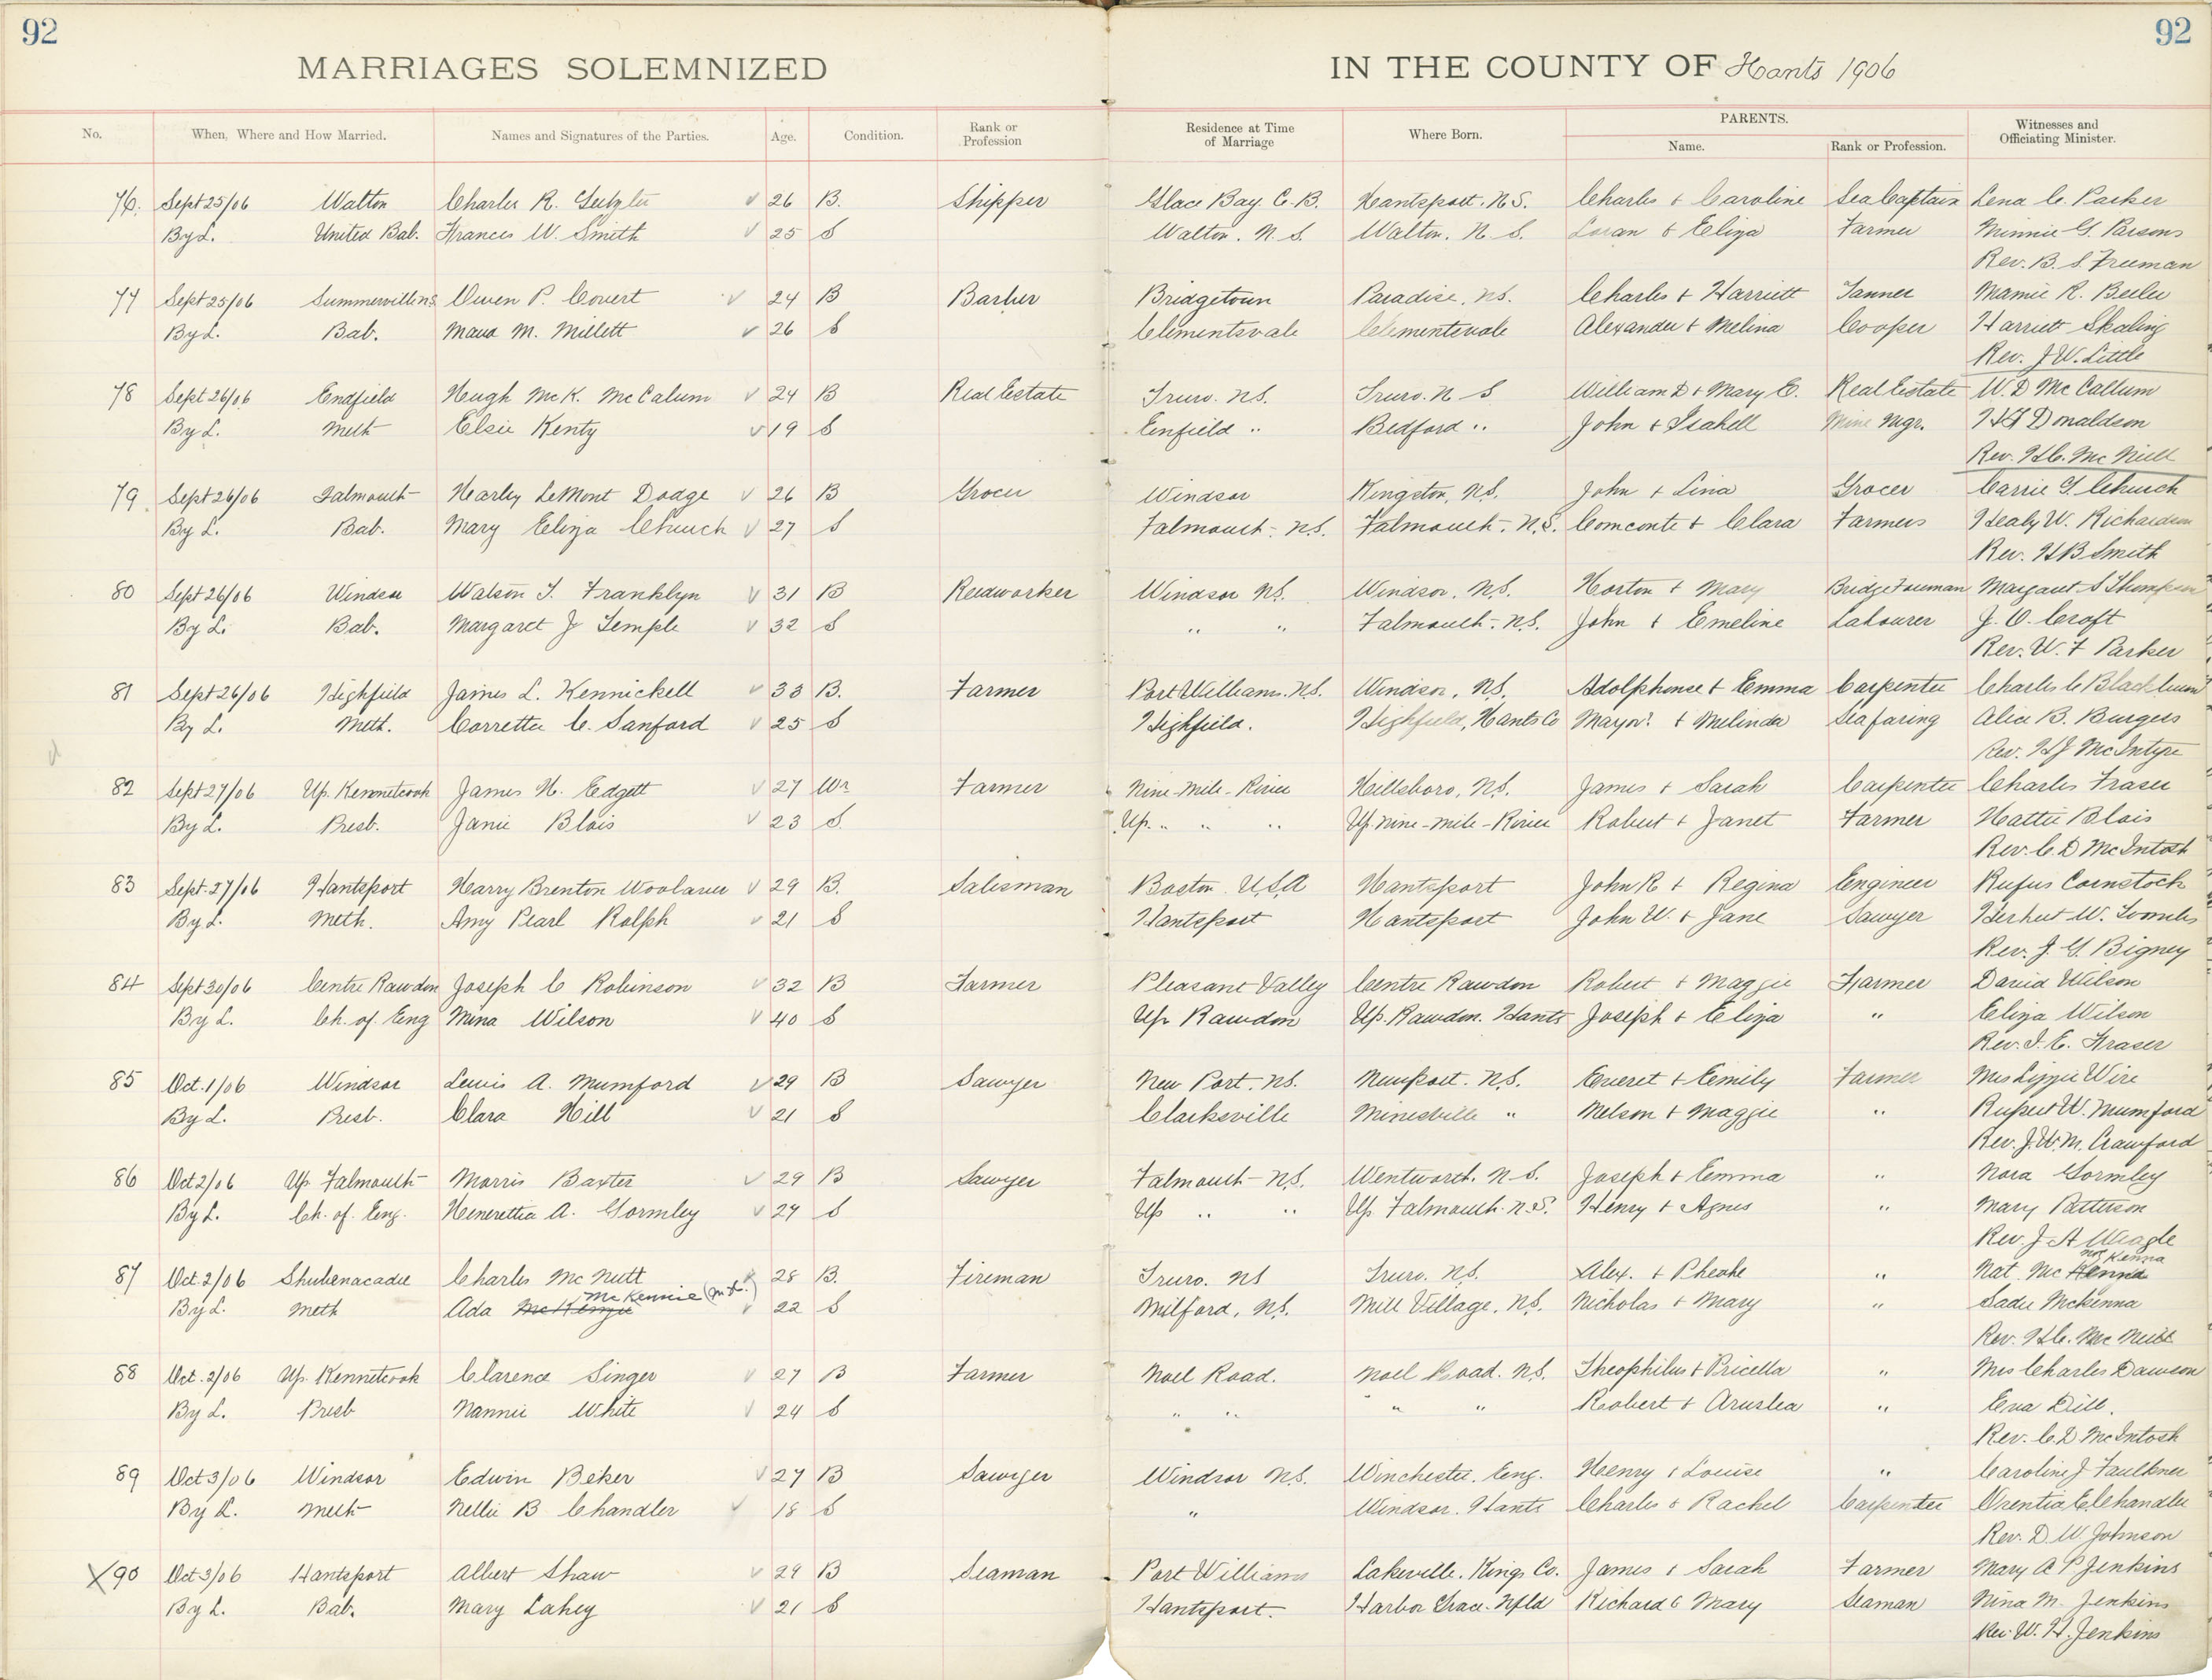 92
92
MARRIAGES SOLEMNIZED IN THE COUNTY OF Hants 1906
No. When, Where and How Married. Names and Signatures of the Parties. Age. Condition. Rank or Profession Residence at Time of Marriage Where Born. PARENTS. Name. Rank or Profession. Witnesses and Officiating Minister.
76. Sept 25/06 Walton Charles R. 26 B. Shipper Glace Bay C.B. Hantsport. N.S. Charles & Caroline Sea Captain Lena C. Parker
By L. United Bab. Frances W. Smith 25 S Walton. N.S. Walton. N.S. Loran & Eliza Farmer Minnie G. Parsons
Rev. B. S. Freeman
77 Sept 25/06 Owen P. Covert 24 B Barber Bridgetown Paradise, N.S. Charles & Harriett Tanner Mamie R.
By L. Bab. Maud M. Millett 26 S Clementsvale Clementsvale Alexander & Melina Cooper Harriett Skaling
Rev. J W. Little
78 Sept 26/06 Endfield Hugh McK. McCalum 24 B Real Estate Truro. N.S. Truro. N S William D & Mary E. Real Estate W. D McCallum
By L. Meth Elsie Kenty 19 S Enfield " Bedford " John & Isabell Mine Mgr. Donaldson
Rev. H C. McNiell
79. Sept 26/06 Falmouth Harley LeMont Dodge 26 B Grocer Windsor Kingston, N.S. John & Lina Grocer Carrie Church
By L. Bab. Mary Eliza Church 27 S Falmouth - N.S. Falmouth - N.S. & Clara Farmers Healy W. Richardson
Rev. H B Smith
80 Sept 26/06 Windsor Watson T. Franklyn 31 B Reedworker Windsor N.S. Windsor. N.S. Horton & Mary Bridge Foreman Margaret S Thompson
By L. Bab. Margaret J Temple 32 S " " Falmouth - N.S. John & Emeline Labourer J. O. Croft
Rev. W. F Parker
81 Sept 26/06 Highfield James L. Kennickell 33 B. Farmer Port Williams. N.S. Windsor, N.S. Adolphonse & Emma Carpenter Charles C Blackburn
By L. Meth. Correttie C. Sanford 25 S Highfield. Highfield, Hants Co & Melinda Seafaring Alice B. Burgess
Rev. H J McIntyre
82 Sept 27/06 Up. Kennetcook James H. Edgett 27 Wr Farmer Nine-Mile-River Hillsboro, N.S. James & Sarah Carpenter Charles Fraser
By L. Presb. Janie Blois 23 S. Up. " " " Up Nine-Mile-River Robert & Janet Farmer Hattie Blois
Rev. C. D McIntosh
83 Sept. 27/06 Hantsport Harry Brenton Woolaver 29 B. Salesman Boston U.S.A Hantsport John R & Regina Engineer Rufus Comstock
By L. Meth. Amy Pearl Rolph 21 S Hantsport Hantsport John W. & Jane Sawyer Herbert W.
Rev. J. G. Bigney
84 Sept 30/06 Centre Rawdon Joseph C Robinson 32 B Farmer Pleasant Valley Centre Rawdon Robert & Maggie Farmer David Wilson
By L. Ch. of Eng Mina Wilson 40 S Up Rawdon Up. Rawdon. Hants Joseph & Eliza " Eliza Wilson
Rev. I. E. Fraser
85 Oct. 1/06 Windsor Lewis A. Mumford 29 B Sawyer New Port. N.S. Newport. N.S. Everet & Emily Farmer Mrs Lizzie Wire
By L. Presb. Clara Hill 21 S Clarksville Minesville " Nelson & Maggie " Rupert W. Mumford
Rev. J. W. M. Crawford
86 Oct 2/06 Up Falmouth Morris Baxter 29 B Sawyer Falmouth - N.S. Wentworth. N.S. Joseph & Emma " Nora Gormley
By L. Ch. of Eng. Henerettia A. Gormley 27 S Up " " Up. Falmouth. N.S. Henry & Agnes " Mary Patterson
Rev. J A
87 Oct. 2/06 Shubenacadie Charles McNutt 28 B. Fireman Truro. N.S Truro. N.S. Alex. & Phebe " Nat McKenna
By L. Meth Ada McKenzie McKennie 22 S Milford, N.S. Mill Village. N.S. Nicholas & Mary " Sadie McKenna
Rev. H C.
88 Oct. 2/06 Up. Kennetcook Clarence Singer 27 B Farmer Noel Road. Noel Road. N.S. Theophilus & Pricella " Mrs Charles Dawson
By L. Presb Nannie White 24 S " " " " Robert & " Eva Dill.
Rev. C. D McIntosh
89 Oct 3/06 Windsor Edwin Beker 27 B Sawyer Windsor N.S. Winchester. Eng. Henry & Louise " Caroline J Faulkner
By L. Meth Nellie B Chandler 18 S " Windsor. Hants Charles & Rachel Carpenter E Chandler
Rev. D. W Johnson
X 90 Oct 3/06 Hantsport Albert Shaw 29 B Seaman Port Williams Lakeville. Kings Co. James & Sarah Farmer Mary A P Jenkins
By L. Bab. Mary Lahey 21 S Hantsport. Harbor Grace. Nfld Richard & Mary Seaman Nina M. Jenkins
Rev. W. H. Jenkins